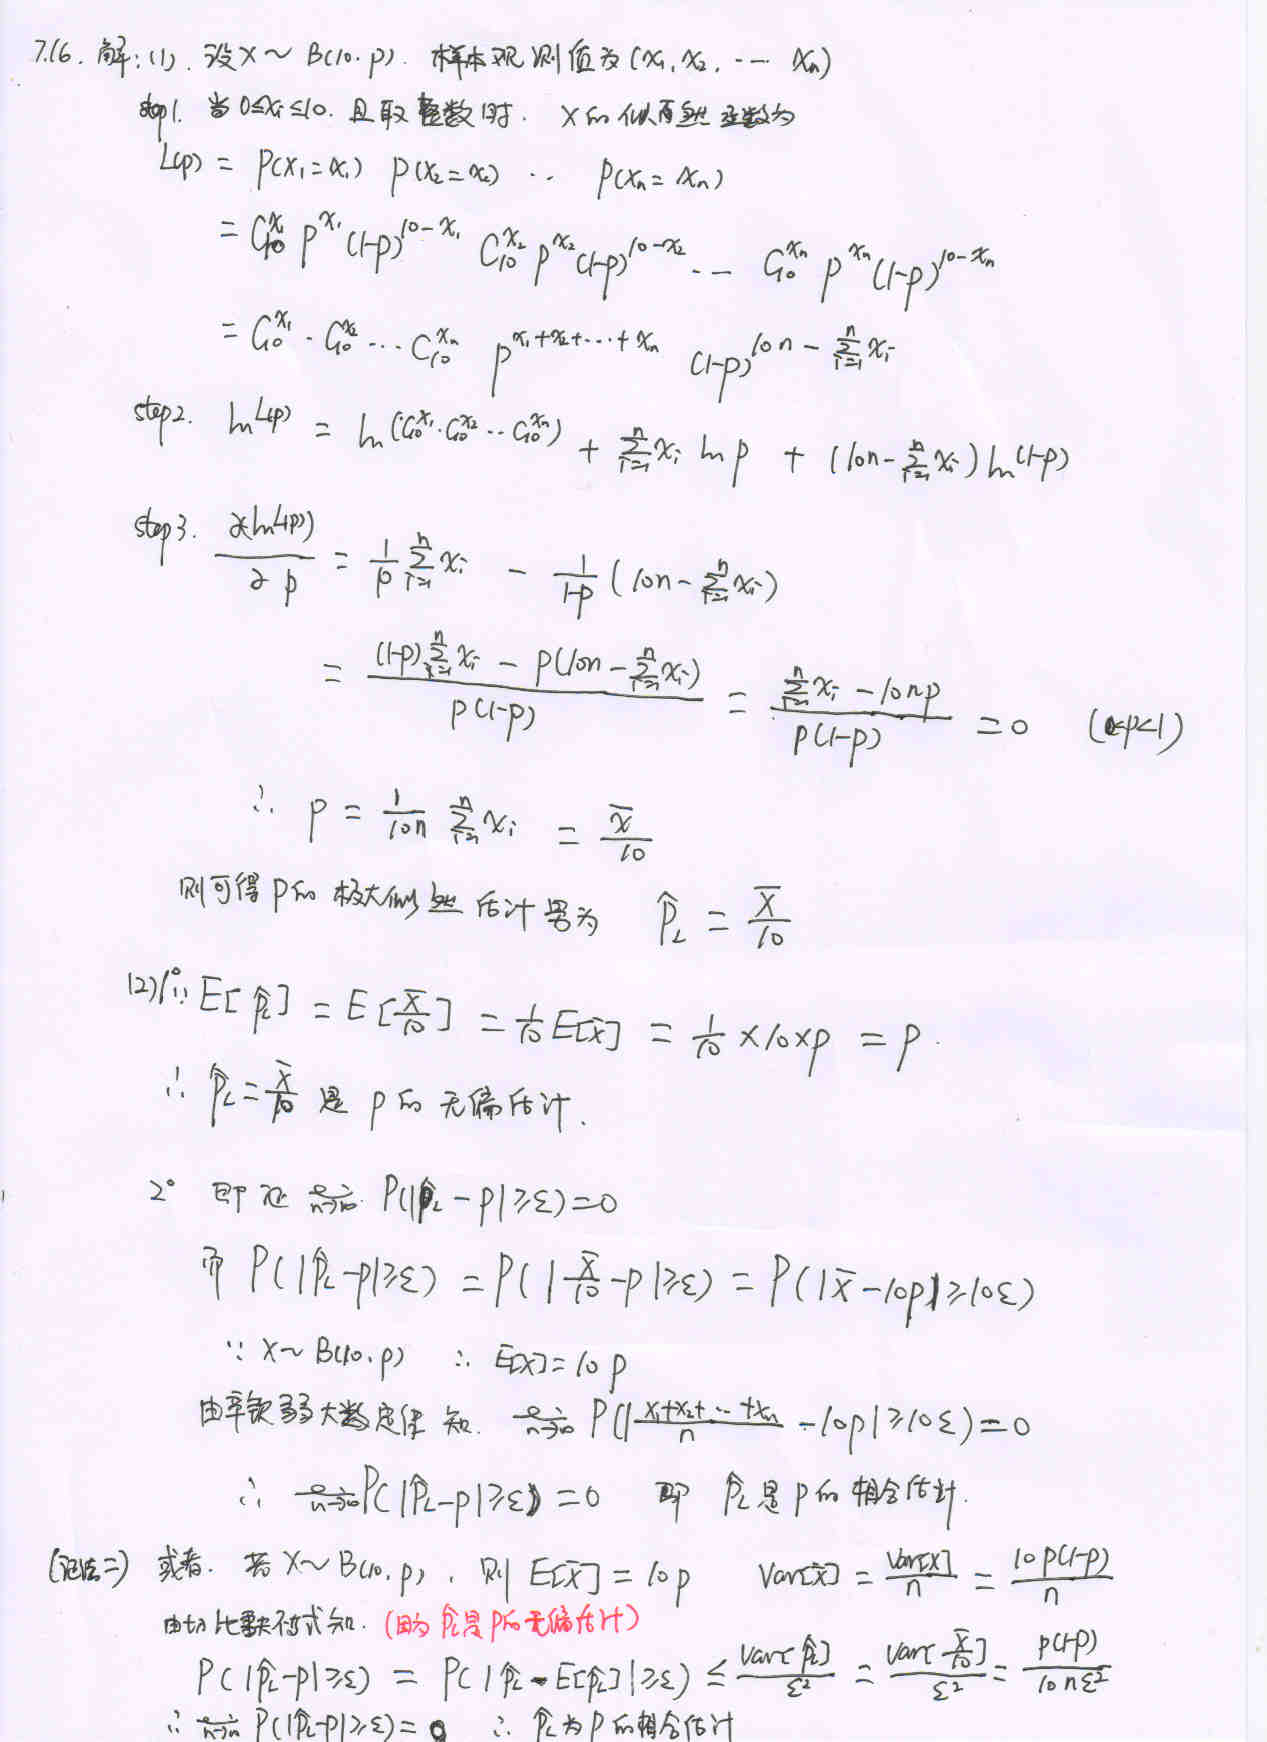 7.16. 解: (1). 设X ~ B(10, p). 样本观测值为 (x₁, x₂, ⋯ xₙ)
step1. 当 0≤xᵢ≤10. 且取整数时. X的似然函数为
L(p) = P(X₁=x₁) P(X₂=x₂) ⋯ P(Xₙ=xₙ)
= C₁₀^{x₁} p^{x₁} (1-p)^{10-x₁} C₁₀^{x₂} p^{x₂} (1-p)^{10-x₂} ⋯ C₁₀^{xₙ} p^{xₙ} (1-p)^{10-xₙ}
= C₁₀^{x₁} · C₁₀^{x₂} ⋯ C₁₀^{xₙ} p^{x₁+x₂+⋯+xₙ} (1-p)^{10n - \sum_{i=1}^{n} xᵢ}
step2. ln L(p) = ln (C₁₀^{x₁} · C₁₀^{x₂} ⋯ C₁₀^{xₙ}) + \sum_{i=1}^{n} xᵢ ln p + (10n - \sum_{i=1}^{n} xᵢ) ln (1-p)
step3. \frac{∂(ln L(p))}{∂ p} = \frac{1}{p} \sum_{i=1}^{n} xᵢ - \frac{1}{1-p} (10n - \sum_{i=1}^{n} xᵢ)
= \frac{(1-p) \sum_{i=1}^{n} xᵢ - p(10n - \sum_{i=1}^{n} xᵢ)}{p(1-p)} = \frac{\sum_{i=1}^{n} xᵢ - 10np}{p(1-p)} = 0 (0<p<1)
∴ p = \frac{1}{10n} \sum_{i=1}^{n} xᵢ = \frac{\bar{x}}{10}
则可得p的极大似然估计量为 \hat{p}_L = \frac{\bar{X}}{10}
(2) 1° ∵ E[\hat{p}_L] = E[\frac{\bar{X}}{10}] = \frac{1}{10} E[\bar{X}] = \frac{1}{10} × 10 × p = p.
∴ \hat{p}_L = \frac{\bar{X}}{10} 是 p 的无偏估计.
2° 即证 \lim_{n→∞} P(|\hat{p}_L - p| ≥ ε) = 0
而 P(|\hat{p}_L - p| ≥ ε) = P(|\frac{\bar{X}}{10} - p| ≥ ε) = P(|\bar{X} - 10p| ≥ 10ε)
∵ X ~ B(10, p) ∴ E[X] = 10p
由辛钦弱大数定律知. \lim_{n→∞} P(|\frac{X₁+X₂+⋯+Xₙ}{n} - 10p| ≥ 10ε) = 0
∴ \lim_{n→∞} P(|\hat{p}_L - p| ≥ ε) = 0 即 \hat{p}_L 是 p 的相合估计.
(证法二) 或者. 若 X ~ B(10, p), 则 E[\bar{X}] = 10p Var[\bar{X}] = \frac{Var[X]}{n} = \frac{10p(1-p)}{n}
由切比雪夫不等式知. (因为 \hat{p}_L 是 p 的无偏估计)
P(|\hat{p}_L - p| ≥ ε) = P(|\hat{p}_L - E[\hat{p}_L]| ≥ ε) ≤ \frac{Var[\hat{p}_L]}{ε²} = \frac{Var[\frac{\bar{X}}{10}]}{ε²} = \frac{p(1-p)}{10nε²}
∴ \lim_{n→∞} P(|\hat{p}_L - p| ≥ ε) = 0 ∴ \hat{p}_L 为 p 的相合估计